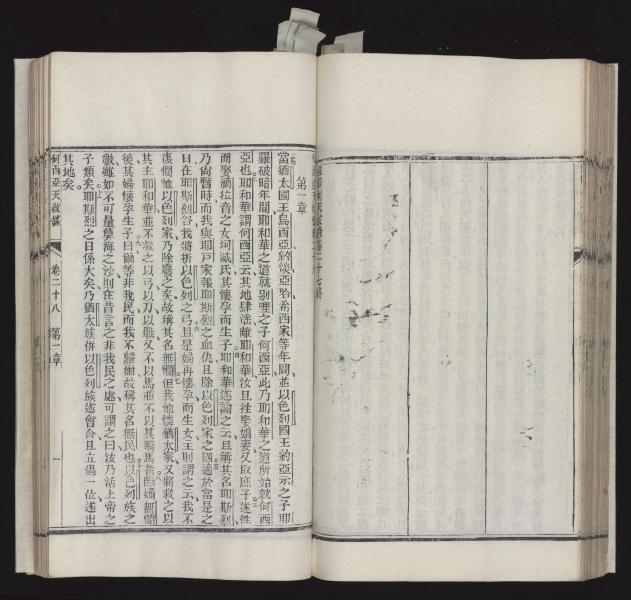 二十七終
第一章
當猶太國王烏西亞約淡亞哈希西家等年間並以色列國王約亞示之子耶
羅破暗年間耶和華之道就别哩之子何西亞此乃耶和華之道所始就何西
亞也耶和華謂何西亞云其地肆淫離耶和華汝且往娶娼妻又取庶子遂往
而娶滴拉音之女坷氏其懷孕而生子耶和華遂諭之云且稱其名耶斯烈
乃尚暫時而我與耶戶家報耶斯烈之血仇且除以色列家之國適於當是之
日在耶斯烈谷我將折以色列之弓且是婦再懷孕而生女主則謂之云我不
復憫恤以色列家乃除廢之矣故稱其名無憫但我恤憐猶太家又將救之以
其主耶和華並不救之以弓以刀以戰又不以馬並不以其騎馬者斷嬭無憫
後其婦懷孕生子曰爾等非我民而我不歸爾故稱其名無民也以色列族之
數雖如不可量擎海之沙則在昔言之非我民之處可謂之曰汝乃活上帝之
子類矣耶斯烈之日係大矣乃猶太族併以色列族遊會合且立倡一位遂出
其地矣
何西亞天啟傳 卷二十八 第一章 一